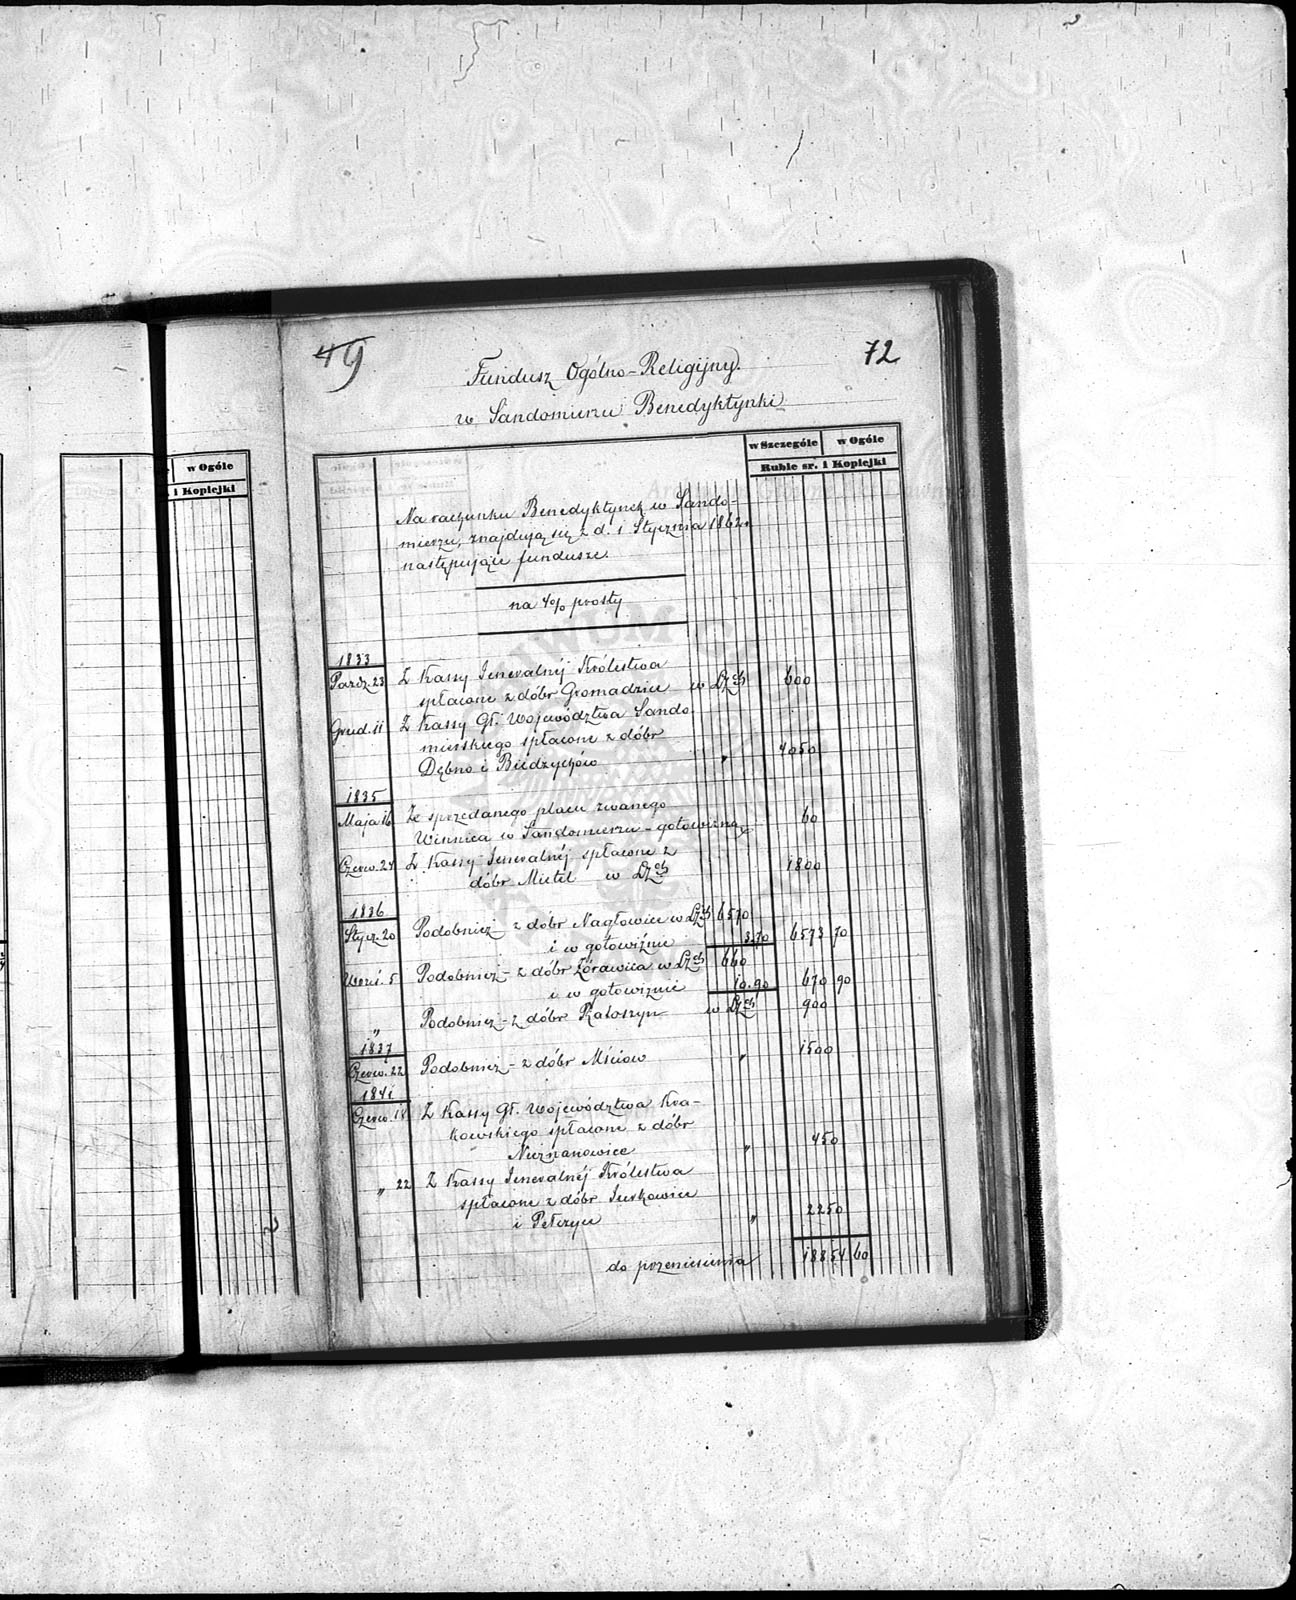 49
72
Fundusz Ogólno-Religijny.
w Sandomierzu Benedyktynki
w Szczególe w Ogóle
Ruble sr. i Kopiejki
w Ogóle
i Kopiejki
Na rachunku Benedyktynek w Sando-
mierzu, znajdują się z d. 1 Stycznia 1862 r.
następujące fundusze.
na 4% prosty
1833
Paźdz. 23 Z Kassy Jeneralnéj Królestwa
spłacone z dóbr Gromadzice w Lzch 600
Grud. 11 Z Kassy Gł. Województwa Sando-
mierskiego spłacone z dóbr
Dębno i Biedrzychów " 4050
1835
Maja 16 Ze sprzedanego placu zwanego
Winnica w Sandomierzu - gotowizną 60
Czerw. 24 Z Kassy Jeneralnéj spłacone z
dóbr Mietel w Lzch 1800
1836
Stycz. 20 Podobnież - z dóbr Nagłowice w Lzch 6570
i w gotowiźnie 3.70 6573 70
Wrześ. 5 Podobnież - z dóbr Żórawica w Lzch 660
i w gotowiźnie 10.90 670 90
" Podobnież - z dóbr Ratoszyn w Lzch 900
1837
Czerw. 22 Podobnież - z dóbr Mściów " 1500
1841
Czerw. 18 Z Kassy Gł. Województwa Kra-
kowskiego spłacone z dóbr
Nieznanowice " 450
" 22 Z Kassy Jeneralnéj Królestwa
spłacone z dóbr Jurkowice
i Pełczyce " 2250
do przeniesienia 18854 60